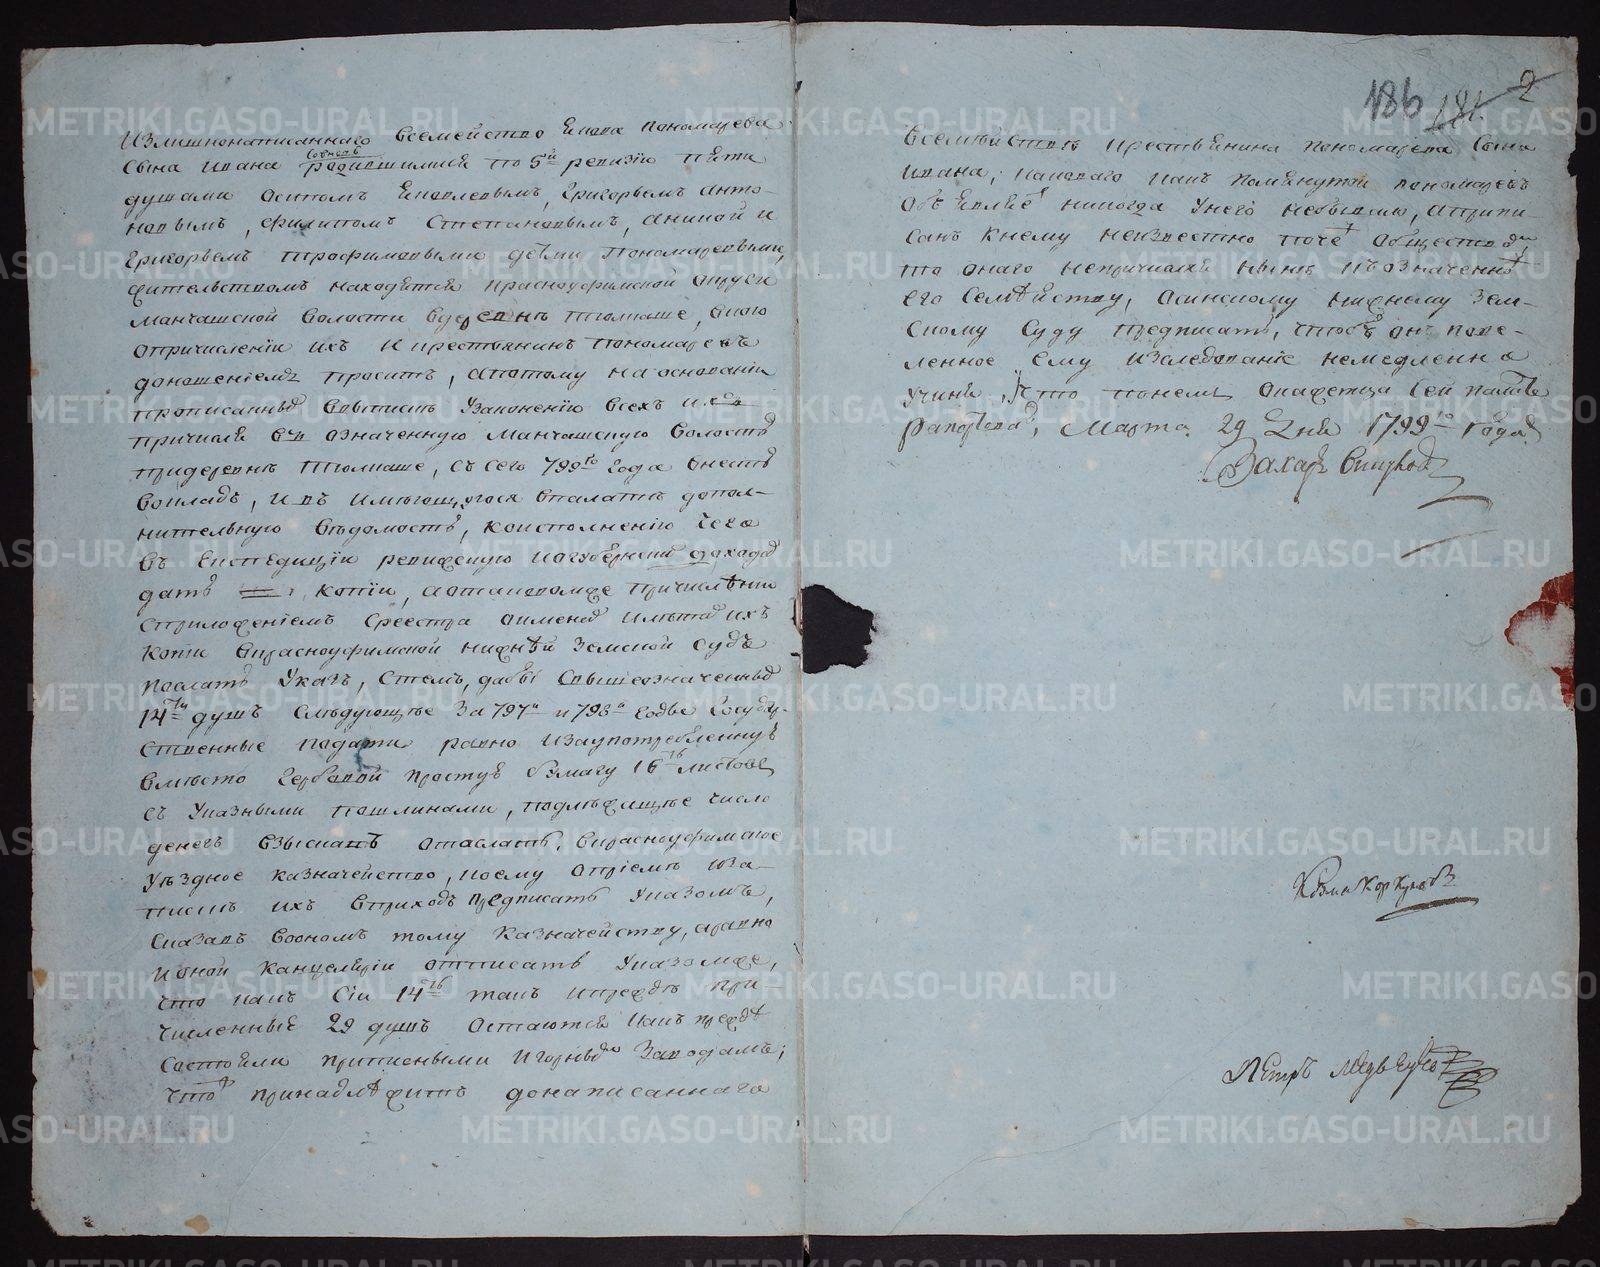 излишнонаписаннаго всемействе Якова Пономарева
сына Ивана родившимися по 5й ревизiи пяти
душами Осипомъ Яковлевымъ, Григорьемъ Анто-
новымъ, Филипомъ Степановымъ, Аникой и
Григорьемъ Трофимовыми детьми Пономаревыми,
жительствомъ находятся Красноуфимской округи
Манчашской волости вдеревнѣ
опричисленiи ихъ крестьянинъ Пономаревъ
доношенiемъ проситъ, апотому на основанiи
прописанныхъ узаконенiю всехъ ихъ
причисля въ означенную Манчашскую волость
придеревнѣ съ сего 799го года внесть
вокладъ, и въ имѣющуюся впалатѣ допол-
нительную вѣдомость, к исполненiю чего
въ експедицiи ревижскую и огубернскихъ доходахъ
дать копiи, а
сприложенiемъ среестра
копiи вКрасноуфимской нижнѣй земской судъ
послать указъ, стемъ, дабы свышеозначенныхъ
14ти душъ слѣдующiе за 797й и 798й годы государ-
ственные подати равно изаупотребленную
вмѣсто гербовой простую бумагу 16ть листовъ
съ указными пошлинами, подлѣжащее число
денегъ взыскать отослать, вКрасноуфимское
уѣздное казначейство, коему оприемѣ иза-
пискѣ ихъ вприходъ предписать указомъ,
сказавъ воономъ тому казначейству, аравно
и оной канцелярiи отписать указомже,
что какъ сiи 14ть такъ ипрежде при-
численные 29 душъ остаются какъ прежде
состояли приписными кгорнымъ заводамъ;
что принадлѣжитъ донаписаннаго
186 181 2
всемѣйствѣ крестьянина Пономарева сына
Ивана, каковаго какъ помянутой Пономаревъ
объявляетъ никогда унего небывало, а припи-
санъ кнему неизвестно почему обществомъ,
то онаго непричисляя нынѣ къозначенному
его семѣйству, Осинскому нижнему зем-
скому суду предписать, чтобъ онъ пове-
ленное ему изследованiе немедленно
учиня, и что понемъ окажетца сей палате
рапортовалъ, Марта 29 дня 1799го года
Захаръ
Петръ Медведевъ